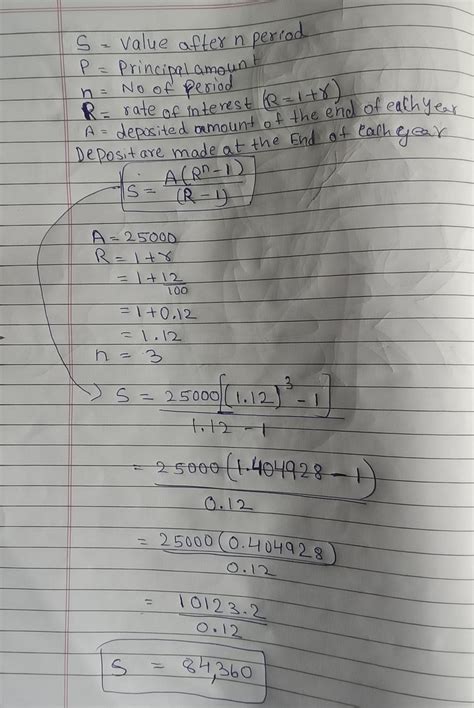 S = Value after n period
P = Principal amount
n = No of period
R = rate of interest (R = 1+r)
A = deposited amount of the end of each year
Deposit are made at the End of Each year
S = A(Rⁿ-1)
(R-1)
A = 25000
R = 1+r
= 1+12
100
= 1+0.12
= 1.12
n = 3
S = 25000[(1.12)³-1]
1.12-1
= 25000(1.404928-1)
0.12
= 25000(0.404928)
0.12
= 10123.2
0.12
S = 84,360